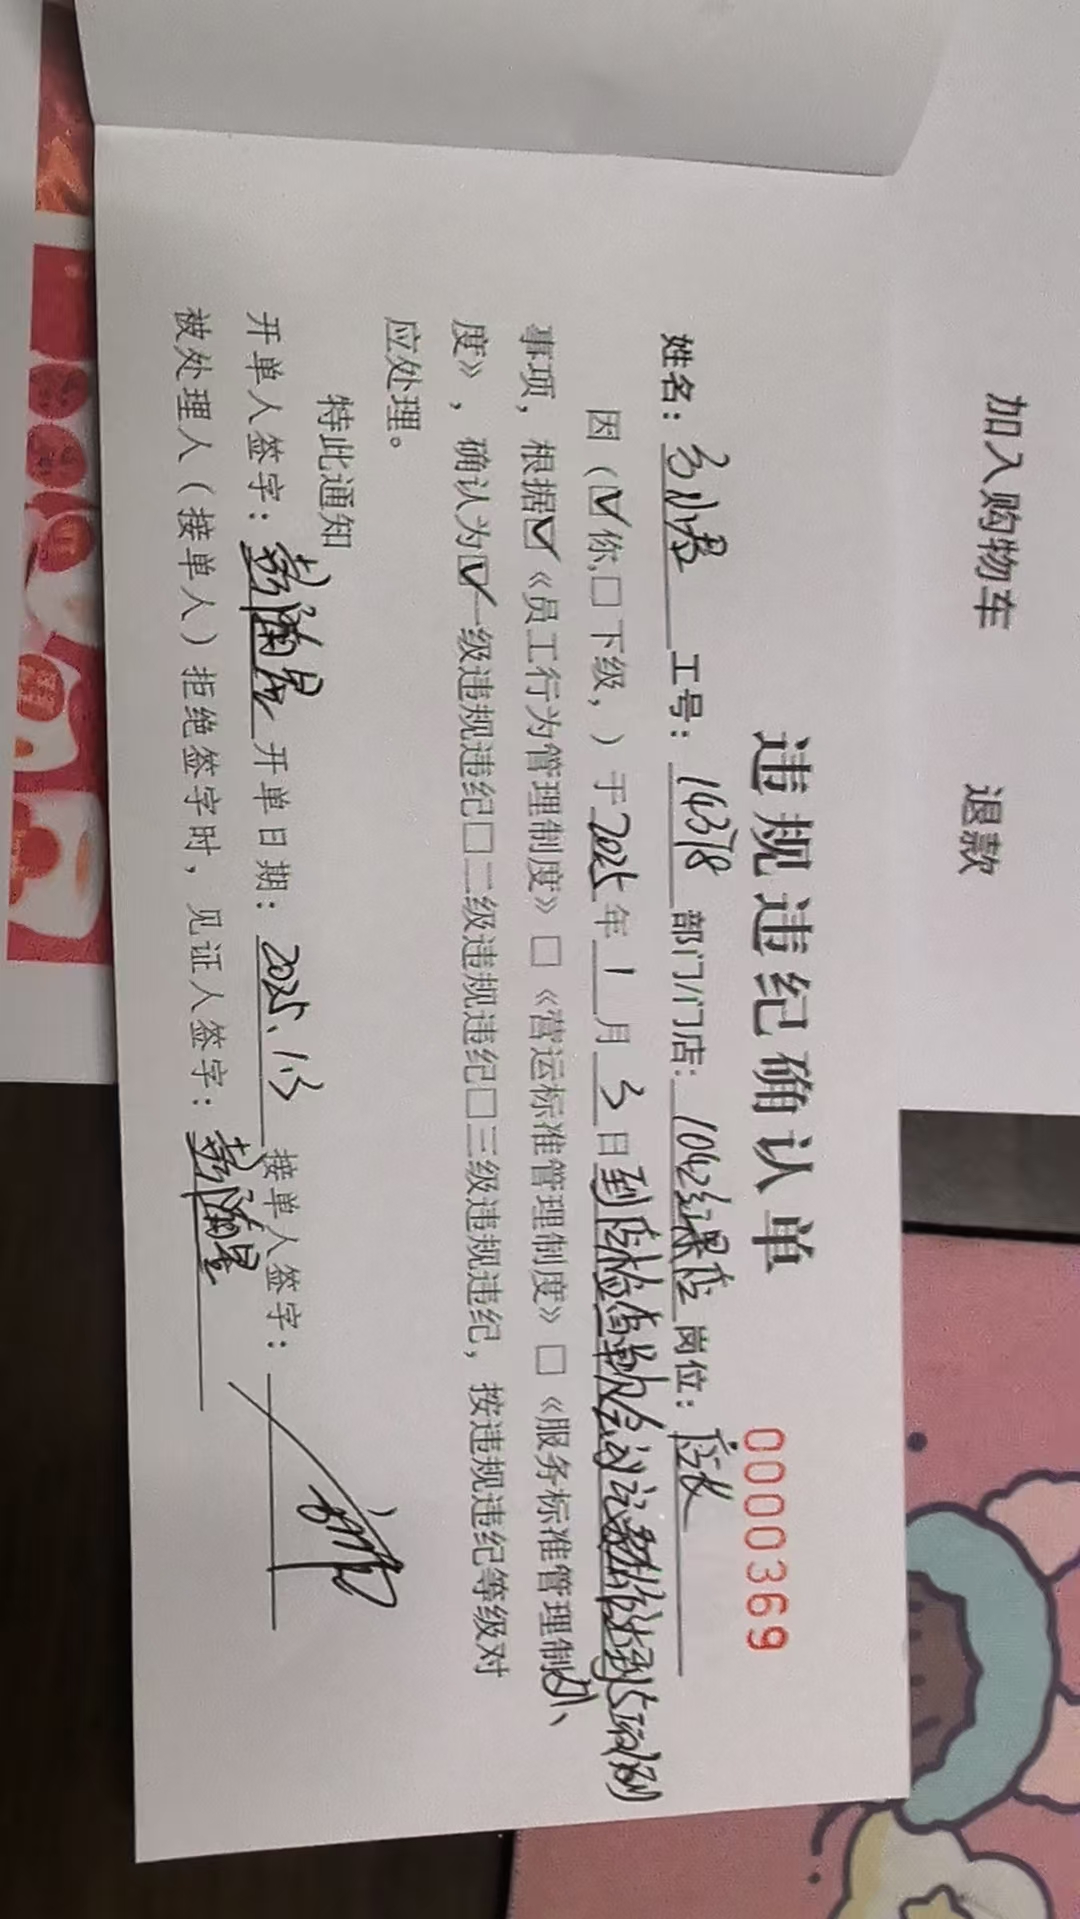 加入购物车 退款
违规违纪确认单
0000369
姓名: 工号: 14378 部门/门店: 1042红果店 岗位: 店长
因 (☑你,□下级, ) 于2025年1月3日到店检查
事项, 根据☑《员工行为管理制度》□《营运标准管理制度》□《服务标准管理制
度》, 确认为☑一级违规违纪□二级违规违纪□三级违规违纪, 按违规违纪等级对
应处理。
特此通知
开单人签字: 开单日期: 2025.1.3 接单人签字:
被处理人 (接单人) 拒绝签字时, 见证人签字: